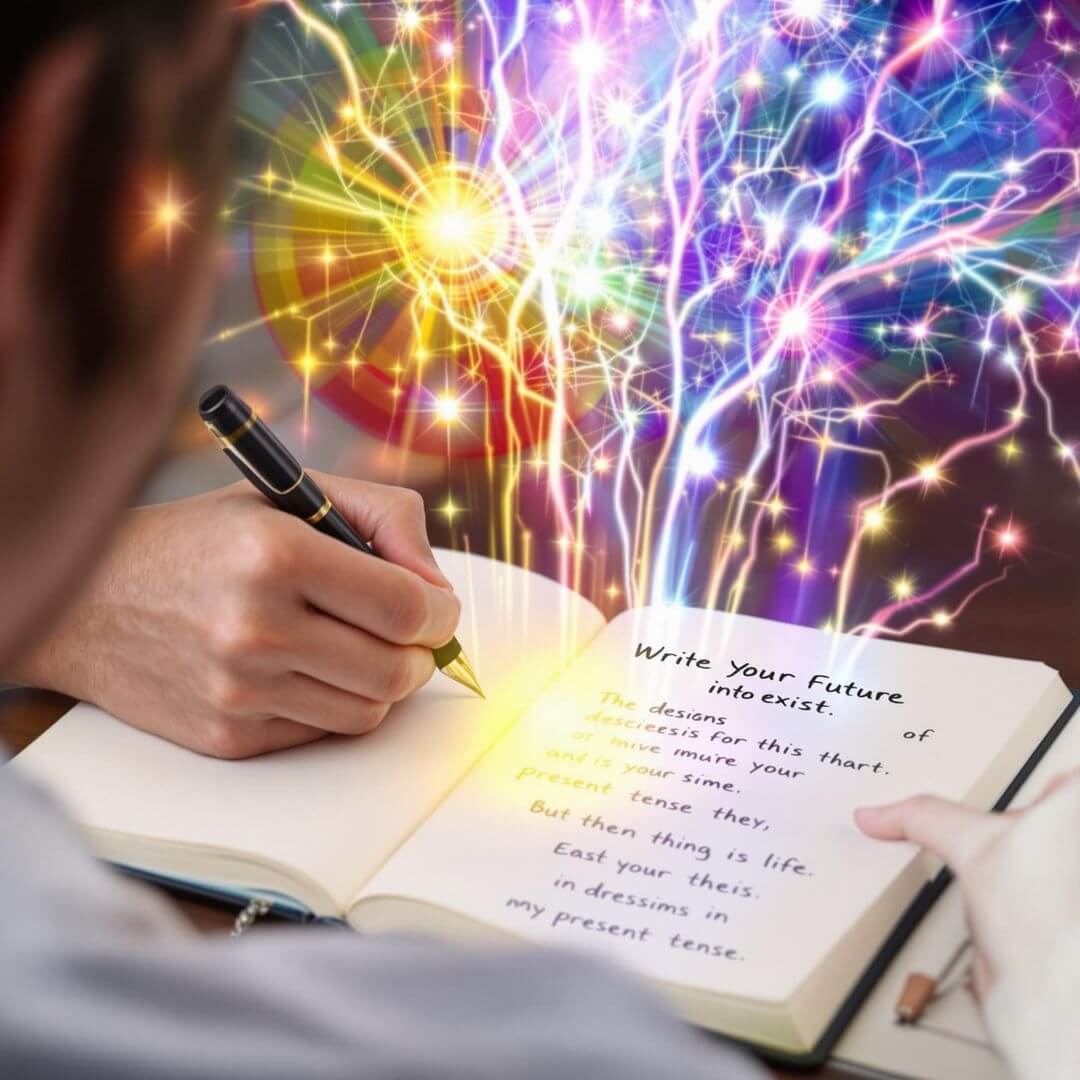 Write Your Future
into exist.
The designs of
descieesis for this thart.
of mive mure your
and is your sime.
present tense they,
But then thing is life.
East your theis.
in dressims in
my present tense.